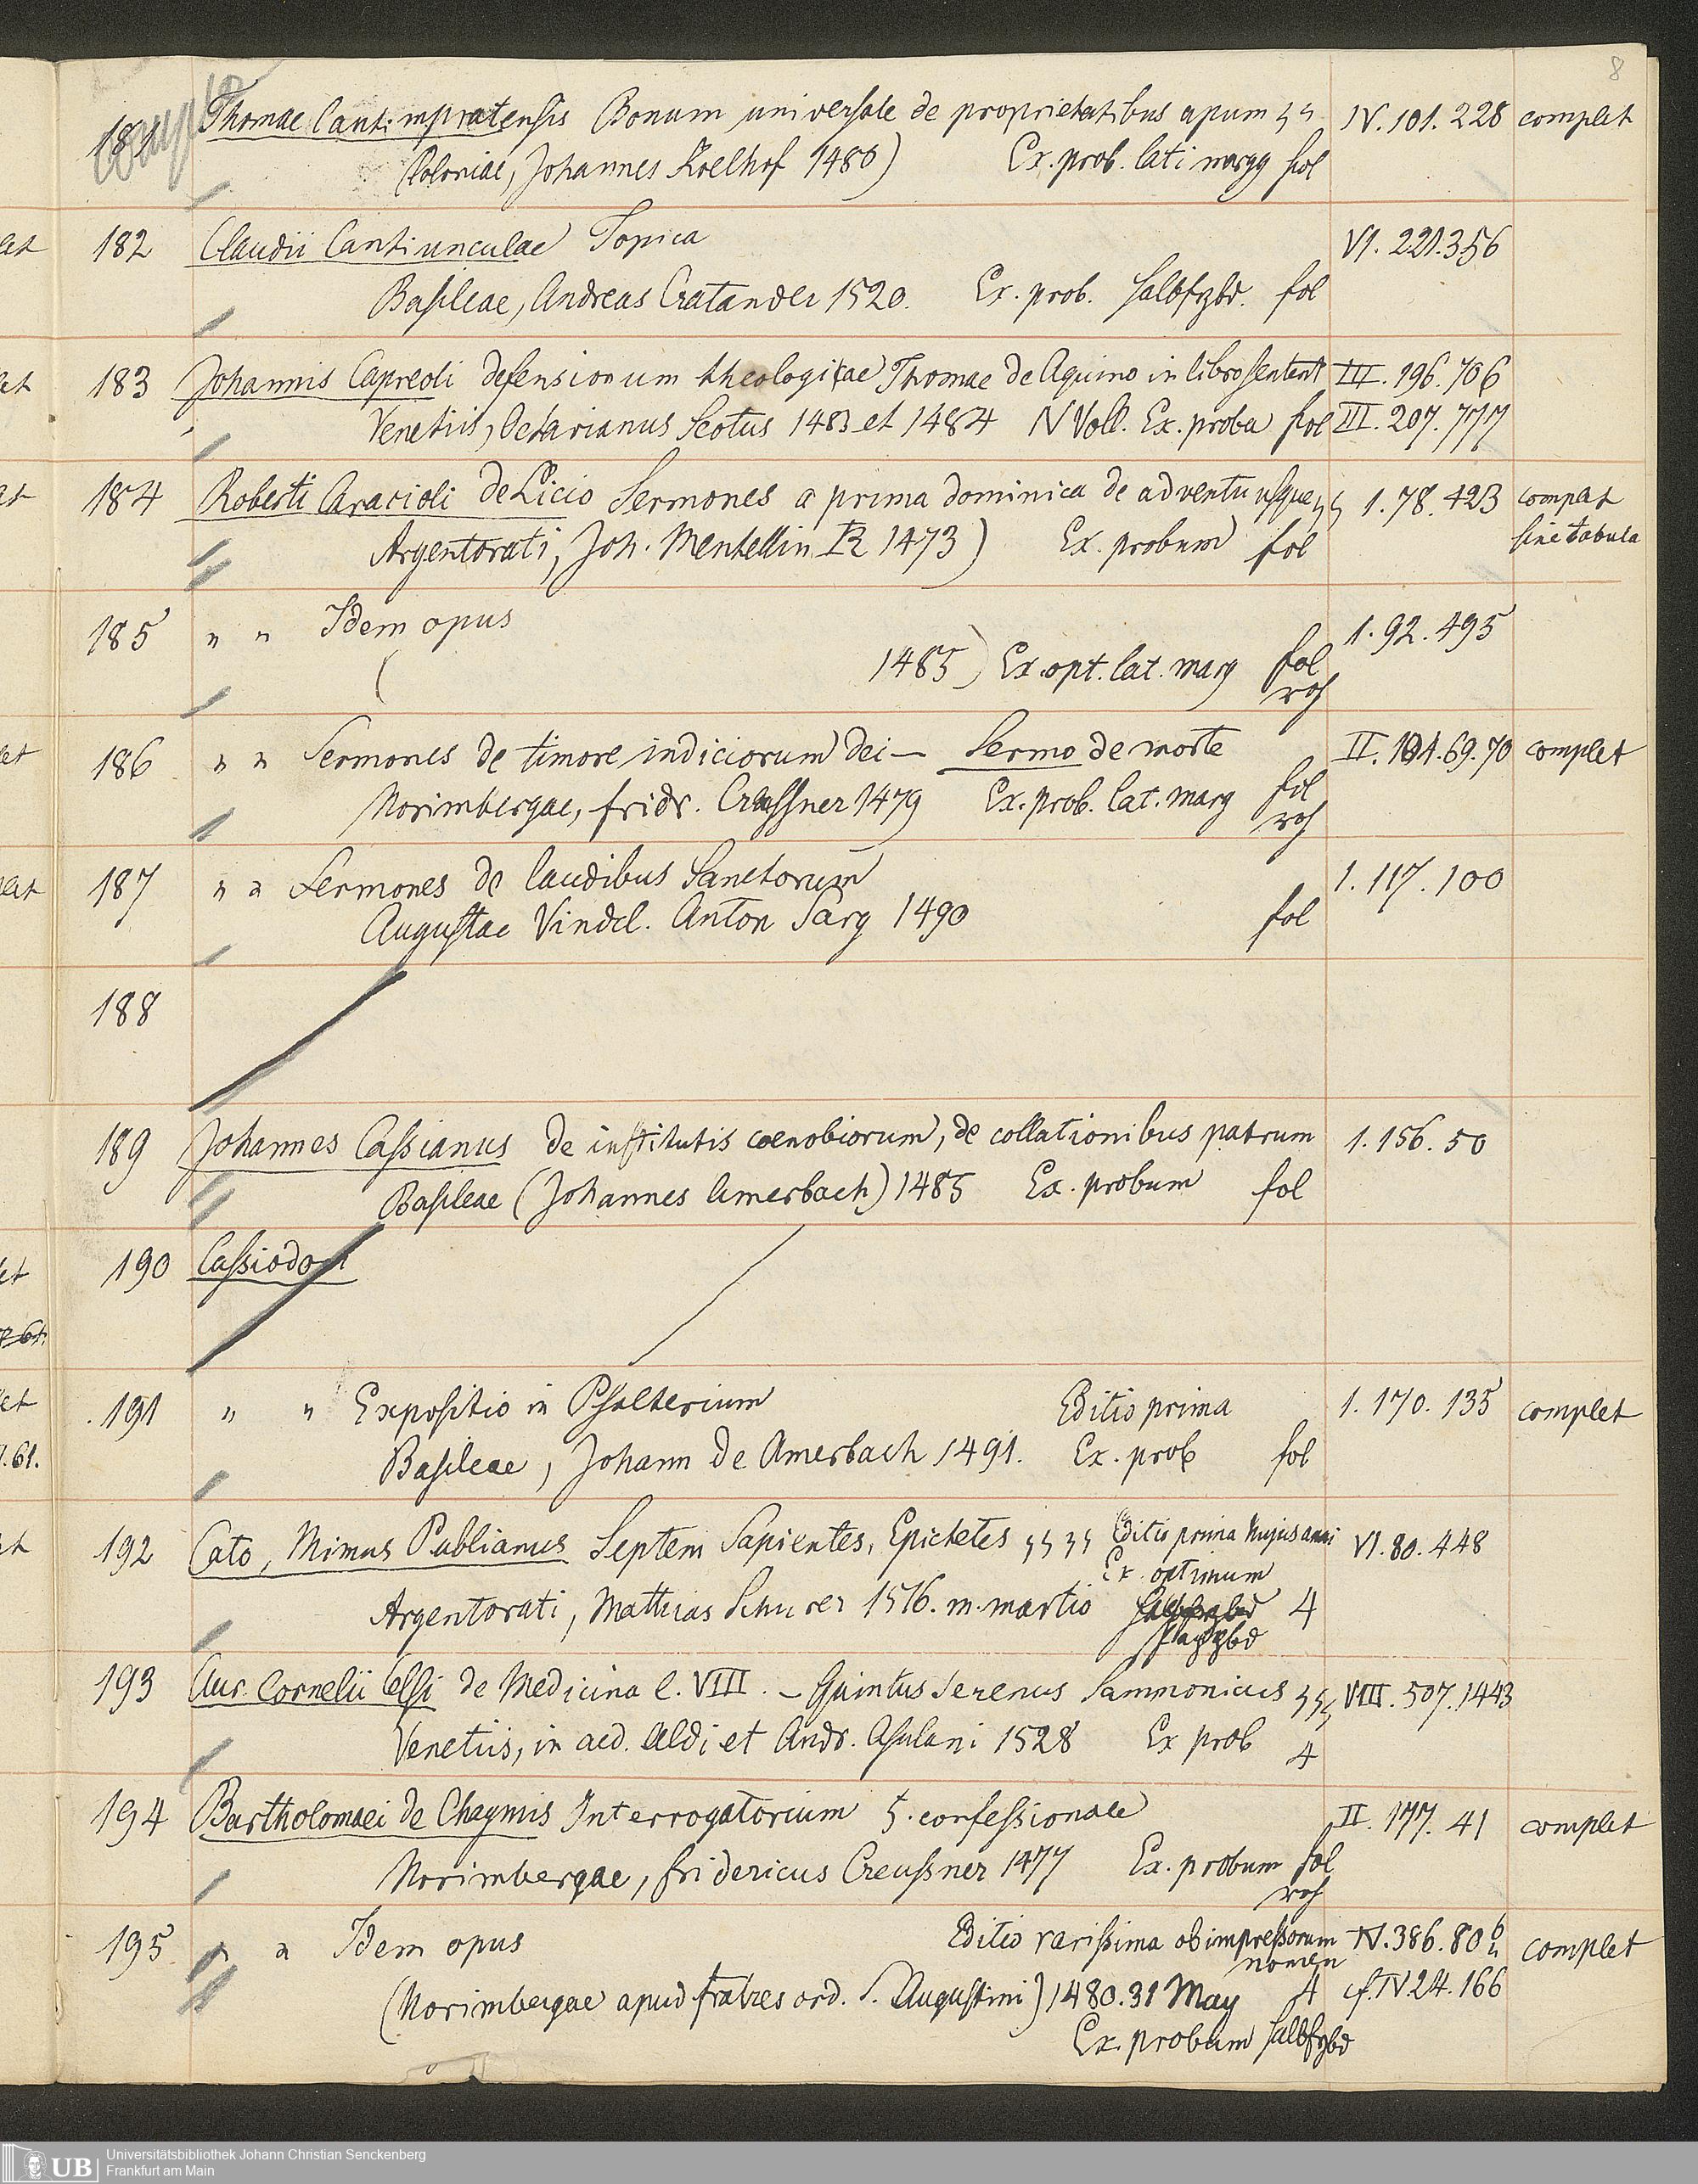 8
181 Thomae Cantimpratensis Bonum universale de proprietatibus apum IV. 101. 228 complet
(Coloniae, Johannes Koelhof 1480) Ex. prob. lati margg fol
182 Claudii Cantiunculae Topica VI. 221. 356
Basileae, Andreas Cratander 1520. Ex. prob. Halbfrzbd. fol
183 Johannis Capreoli defensionum theologicae Thomae de Aquino in libro sentent III. 196. 706
Venetiis, Octavianus Scotus 1483 et 1484 IV Voll. Ex. proba fol III. 207. 777
184 Roberti Caracioli de Licio Sermones a prima dominica de adventu usque 1. 78. 423 complet
Argentorati, Joh. Mentellin 1473) Ex. probum fol sine tabula
185 " " Idem opus 1. 92. 495
( 1485) Ex. opt. lat. marg fol
roh
186 " " Sermones de timore iudiciorum dei — Sermo de morte II. 104. 69. 70 complet
Norimbergae, fridr. Creussner 1479 Ex. prob. lat. marg fol
roh
187 " " Sermones de laudibus Sanctorum 1. 117. 100
Augustae Vindel. Anton Sorg 1490 fol
188
189 Johannes Cassianus de institutis coenobiorum, de collationibus patrum 1. 156. 50
Basileae (Johannes Amerbach) 1485 Ex. probum fol
190 Cassiodori
191 " " Expositio in Psalterium Editio prima 1. 170. 135 complet
Basileae, Johann de Amerbach 1491. Ex. prob fol
192 Cato, Mimus Publianus Septem Sapientes, Epictetes Editio prima hujus anni VI. 80. 448
Ex. optimum
Argentorati, Mathias Schurer 1516. m. martio 4
193 Aur. Cornelii Celsi de Medicina l. VIII. — Quintus Serenus Sammonicus VIII. 507. 1443
Venetiis, in aed. Aldi et Andr. Asulani 1528 Ex prob 4
194 Bartholomaei de Chaymis Interrogatorium s. confessionale II. 177. 41 complet
Norimbergae, fridericus Creussner 1477 Ex. probum fol
roh
195 " " Idem opus Editio rarissima ob impressorum IV. 386. 80 b complet
nomen
(Norimbergae apud fratres ord. S. Augustini) 1480. 31 May 4 cf. IV 24. 166
Ex. probum Halbfrzbd
UB Universitätsbibliothek Johann Christian Senckenberg
Frankfurt am Main